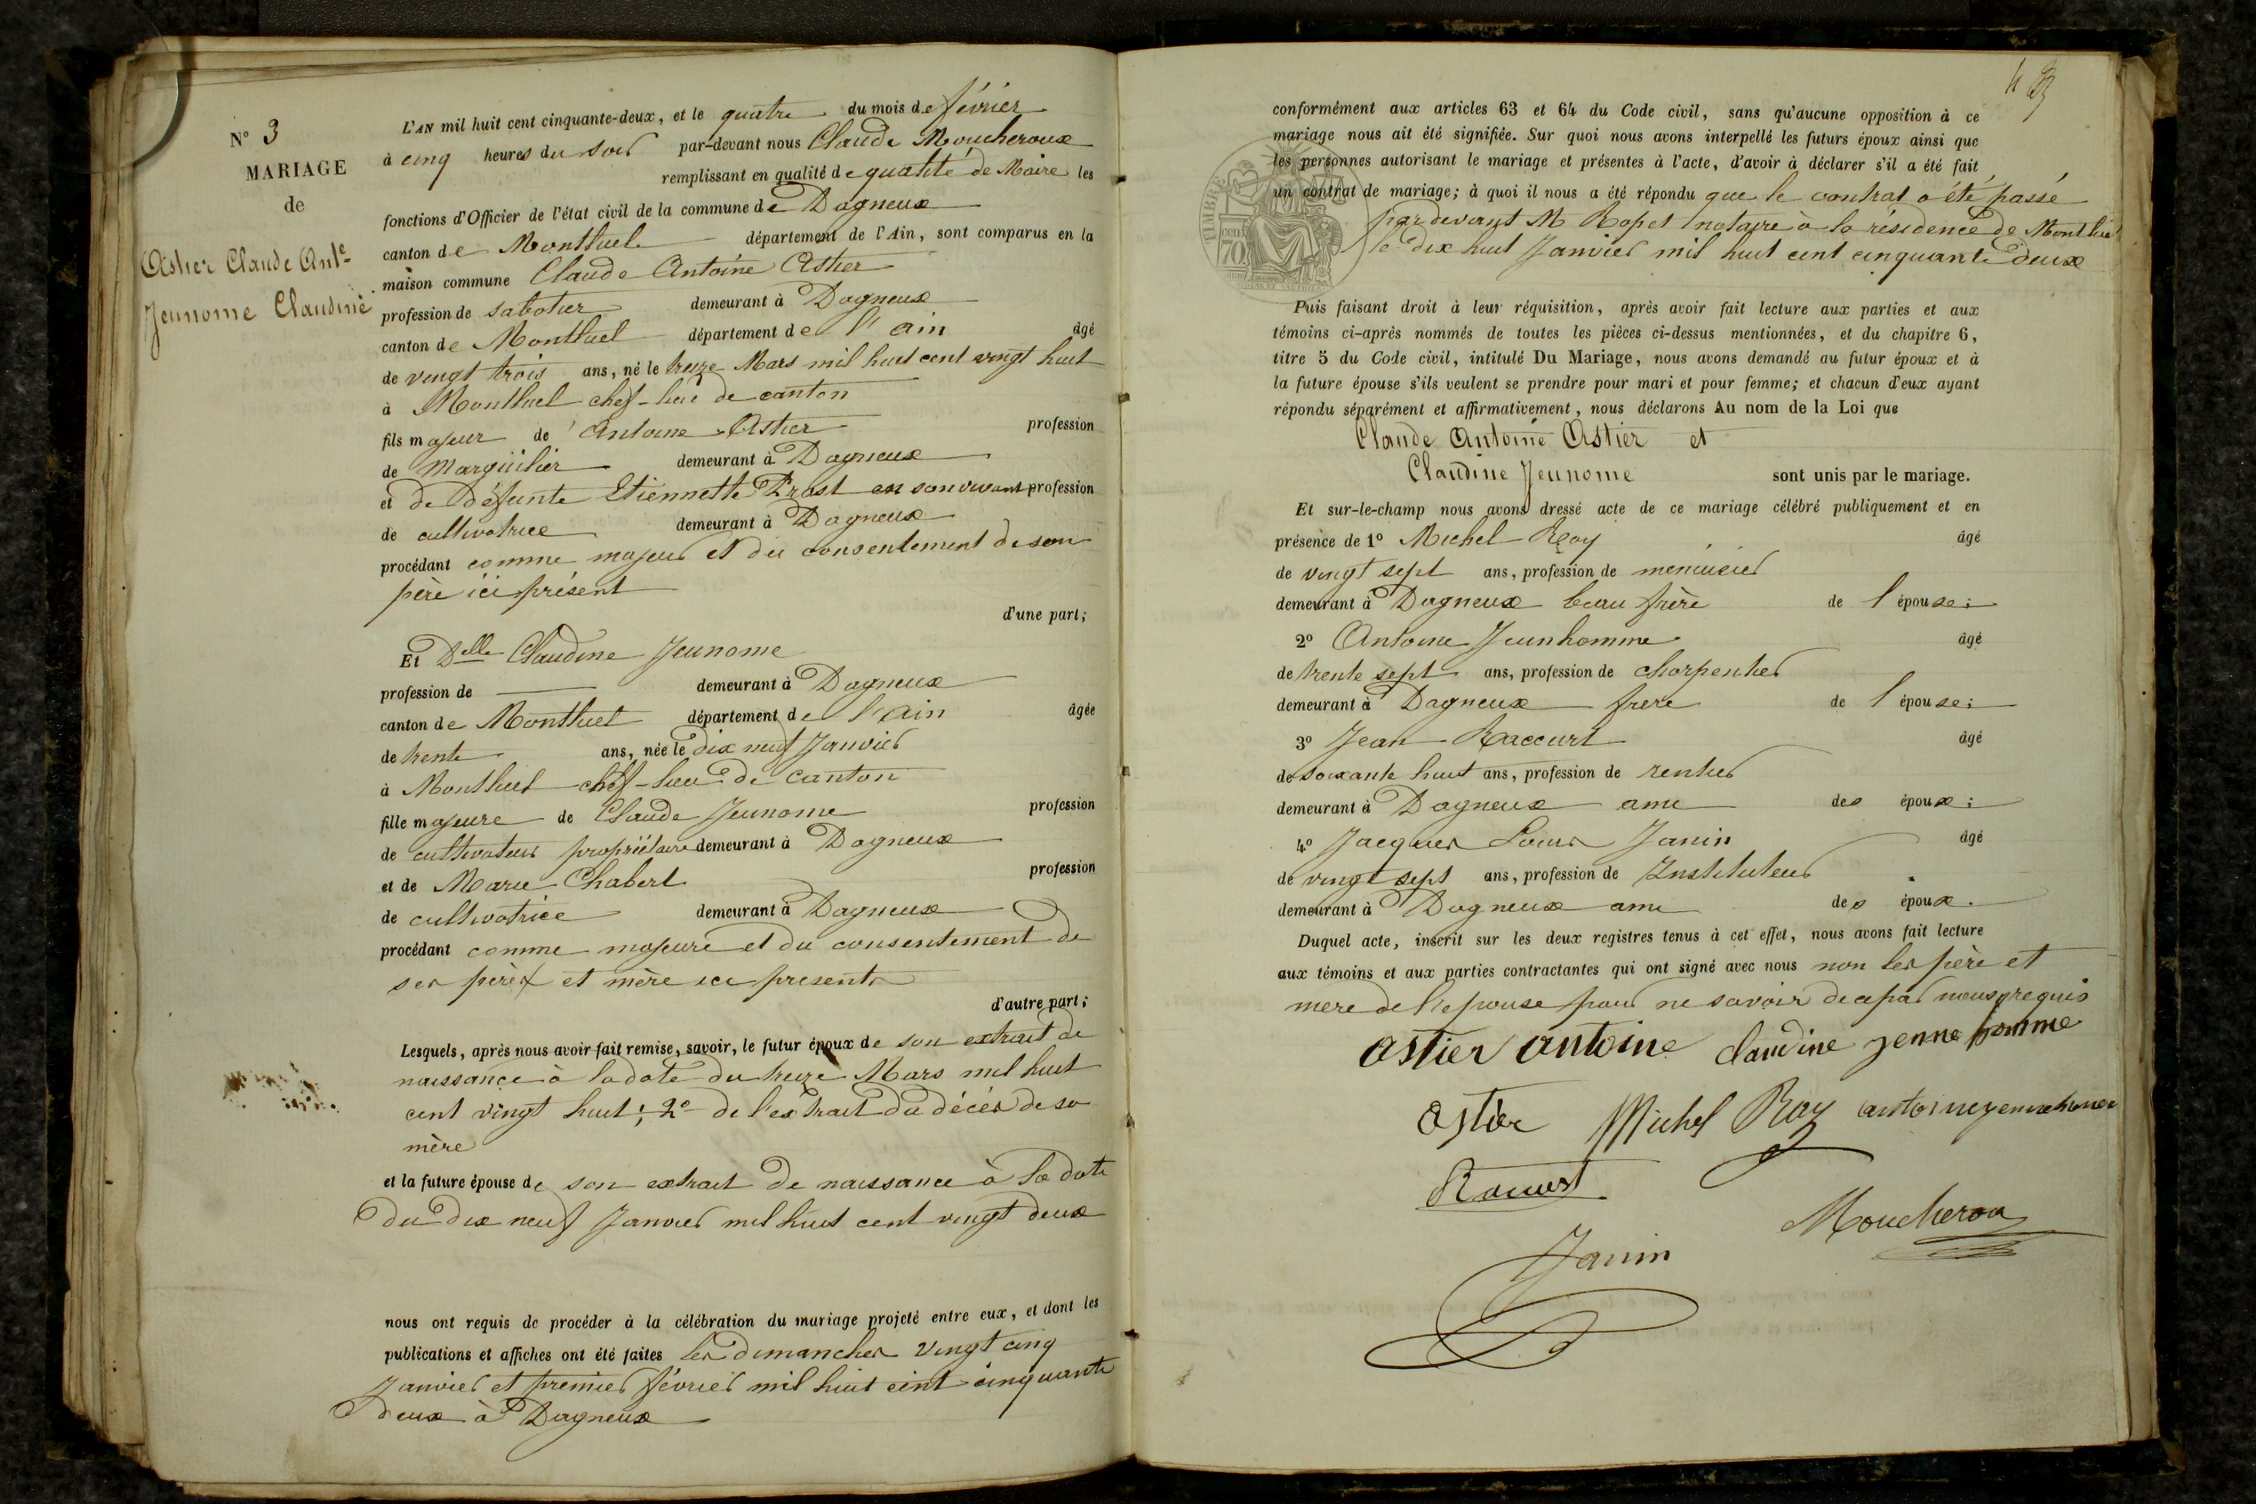 N° 3
MARIAGE
de
Astier Claude Ant.e
Jeunome Claudine
L'AN mil huit cent cinquante-deux, et le quatre du mois de février
à cinq heures du soir par-devant nous Claude Moucheroux
remplissant en qualité de qualité de Maire les
fonctions d'Officier de l'état civil de la commune de Dagneux
canton de Montluel département de l'Ain, sont comparus en la
maison commune Claude Antoine Astier
profession de sabotier demeurant à Dagneux
canton de Montluel département de l'ain âgé
de vingt trois ans, né le treize Mars mil huit cent vingt huit
à Montluel chef-lieu de canton
fils majeur de Antoine Astier profession
de Marguilier demeurant à Dagneux
et de défunte Etiennette Prost en son vivant profession
de cultivatrice demeurant à Dagneux
procédant comme majeur et du consentement de son
père ici présent
d'une part;
Et Delle Claudine Jeunome
profession de demeurant à Dagneux
canton de Montluel département de l'Ain âgée
de trente ans, née le dix neuf Janvier
à Montluel chef-lieu de canton
fille majeure de Claude Jeunome profession
de cultivateur propriétaire demeurant à Dagneux
et de Marie Chabert profession
de cultivatrice demeurant à Dagneux
procédant comme majeure et du consentement de
ses père et mère ici présents
d'autre part;
Lesquels, après nous avoir fait remise, savoir, le futur époux de son extrait de
naissance à la date du treize Mars mil huit
cent vingt huit; 2° de l'extrait du décès de sa
mère
et la future épouse de son extrait de naissance à la date
du dix neuf Janvier mil huit cent vingt deux
nous ont requis de procéder à la célébration du mariage projeté entre eux, et dont les
publications et affiches ont été faites les dimanches vingt cinq
Janvier et premier février mil huit cent cinquante
deux à Dagneux
conformément aux articles 63 et 64 du Code civil, sans qu'aucune opposition à ce
mariage nous ait été signifiée. Sur quoi nous avons interpellé les futurs époux ainsi que
les personnes autorisant le mariage et présentes à l'acte, d'avoir à déclarer s'il a été fait
un contrat de mariage; à quoi il nous a été répondu que le contrat a été passé
par devant M Ropet notaire à la résidence de Montluel
le dix huit Janvier mil huit cent cinquante deux
Puis faisant droit à leur réquisition, après avoir fait lecture aux parties et aux
témoins ci-après nommés de toutes les pièces ci-dessus mentionnées, et du chapitre 6,
titre 5 du Code civil, intitulé Du Mariage, nous avons demandé au futur époux et à
la future épouse s'ils veulent se prendre pour mari et pour femme; et chacun d'eux ayant
répondu séparément et affirmativement, nous déclarons Au nom de la Loi que
Claude Antoine Astier et
Claudine Jeunome sont unis par le mariage.
Et sur-le-champ nous avons dressé acte de ce mariage célébré publiquement et en
présence de 1° Michel Roy âgé
de vingt sept ans, profession de menuisier
demeurant à Dagneux beau frère de l'épouse;
2° Antoine Jeunhomme âgé
de trente sept ans, profession de charpentier
demeurant à Dagneux frère de l'épouse;
3° Jean Raccurt âgé
de soixante huit ans, profession de rentier
demeurant à Dagneux ami des époux;
4° Jacques Louis Janin âgé
de vingt sept ans, profession de Instituteur
demeurant à Dagneux ami des époux.
Duquel acte, inscrit sur les deux registres tenus à cet effet, nous avons fait lecture
aux témoins et aux parties contractantes qui ont signé avec nous non les père et
mère de l'épouse pour ne savoir de ce par nous requis
astier antoine claudine jenne homme
Astier Michel Roy antoine jennehomme
Raccurt
Moucheroux
Janin